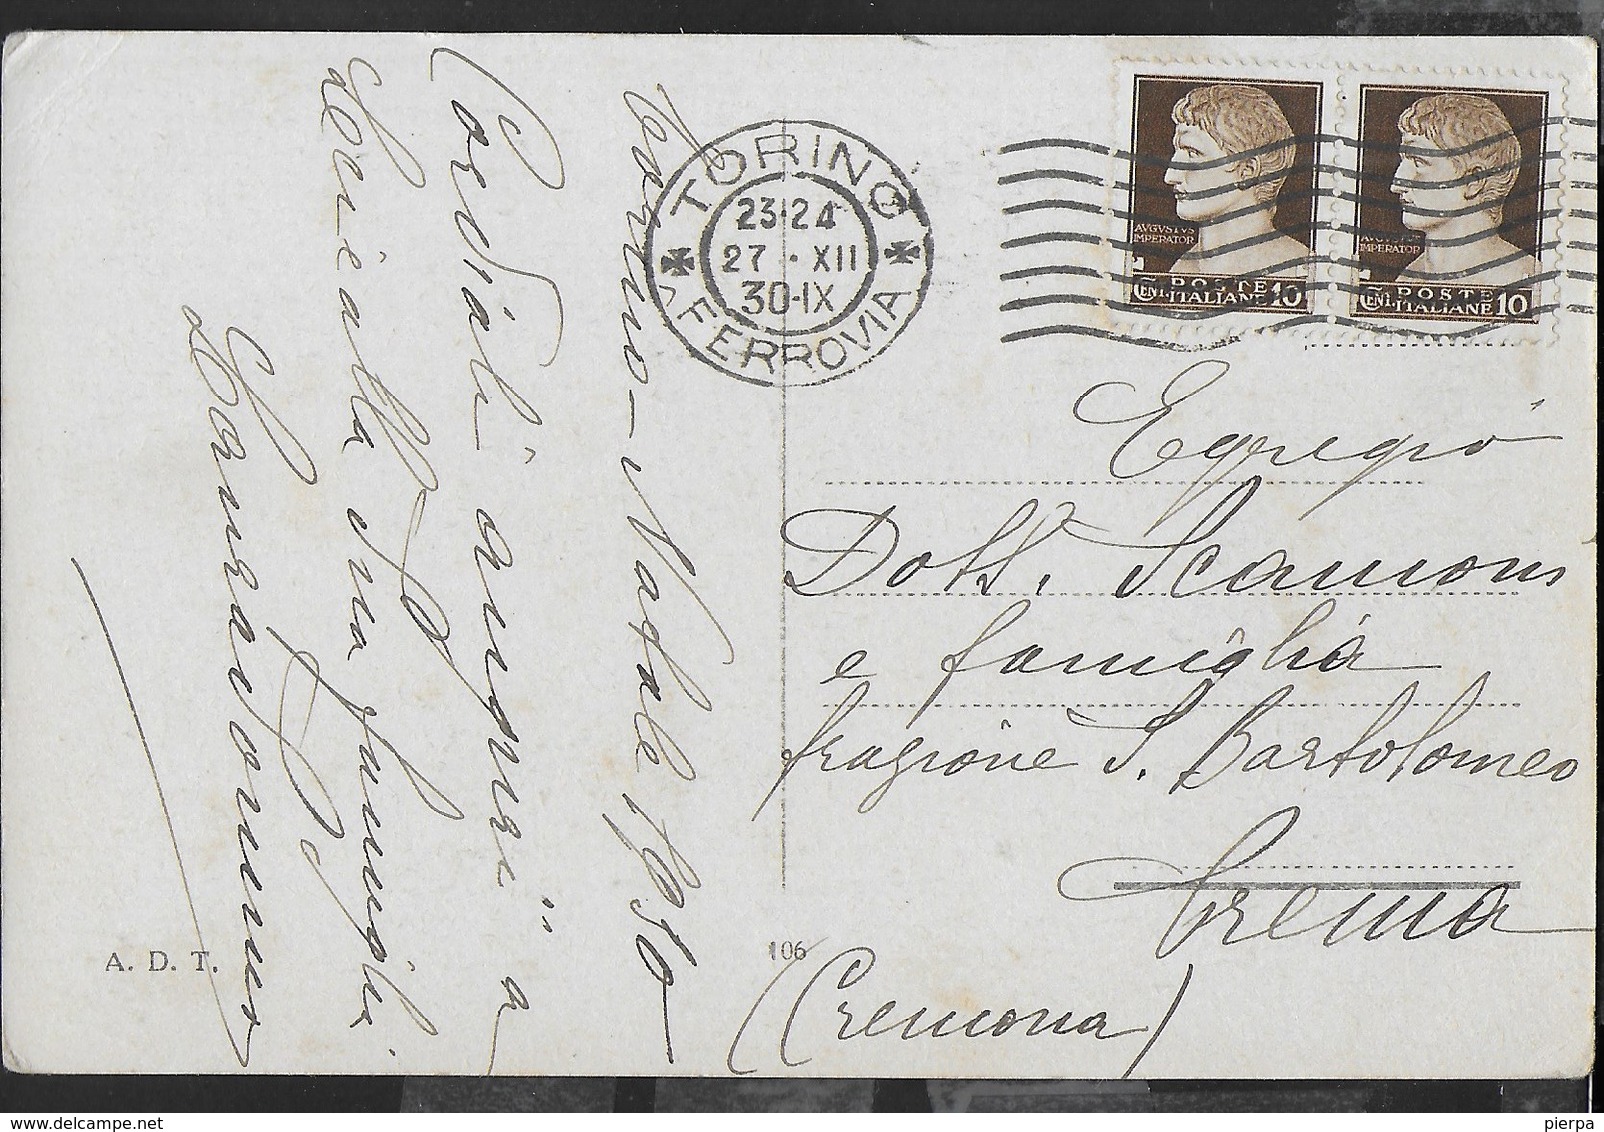 Torino - Natale 1930
Cordiali auguri a
Lei e alla Sua famiglia
TORINO
23·24
27 · XII
30·IX
FERROVIA
AVGVSTVS
IMPERATOR
CENT. POSTE
ITALIANE 10
AVGVSTVS
IMPERATOR
CENT. POSTE
ITALIANE 10
Egregio
Dott. Scamoni
e famiglia
frazione S. Bartolomeo
Crema
(Cremona)
A. D. T.
106
pierpa